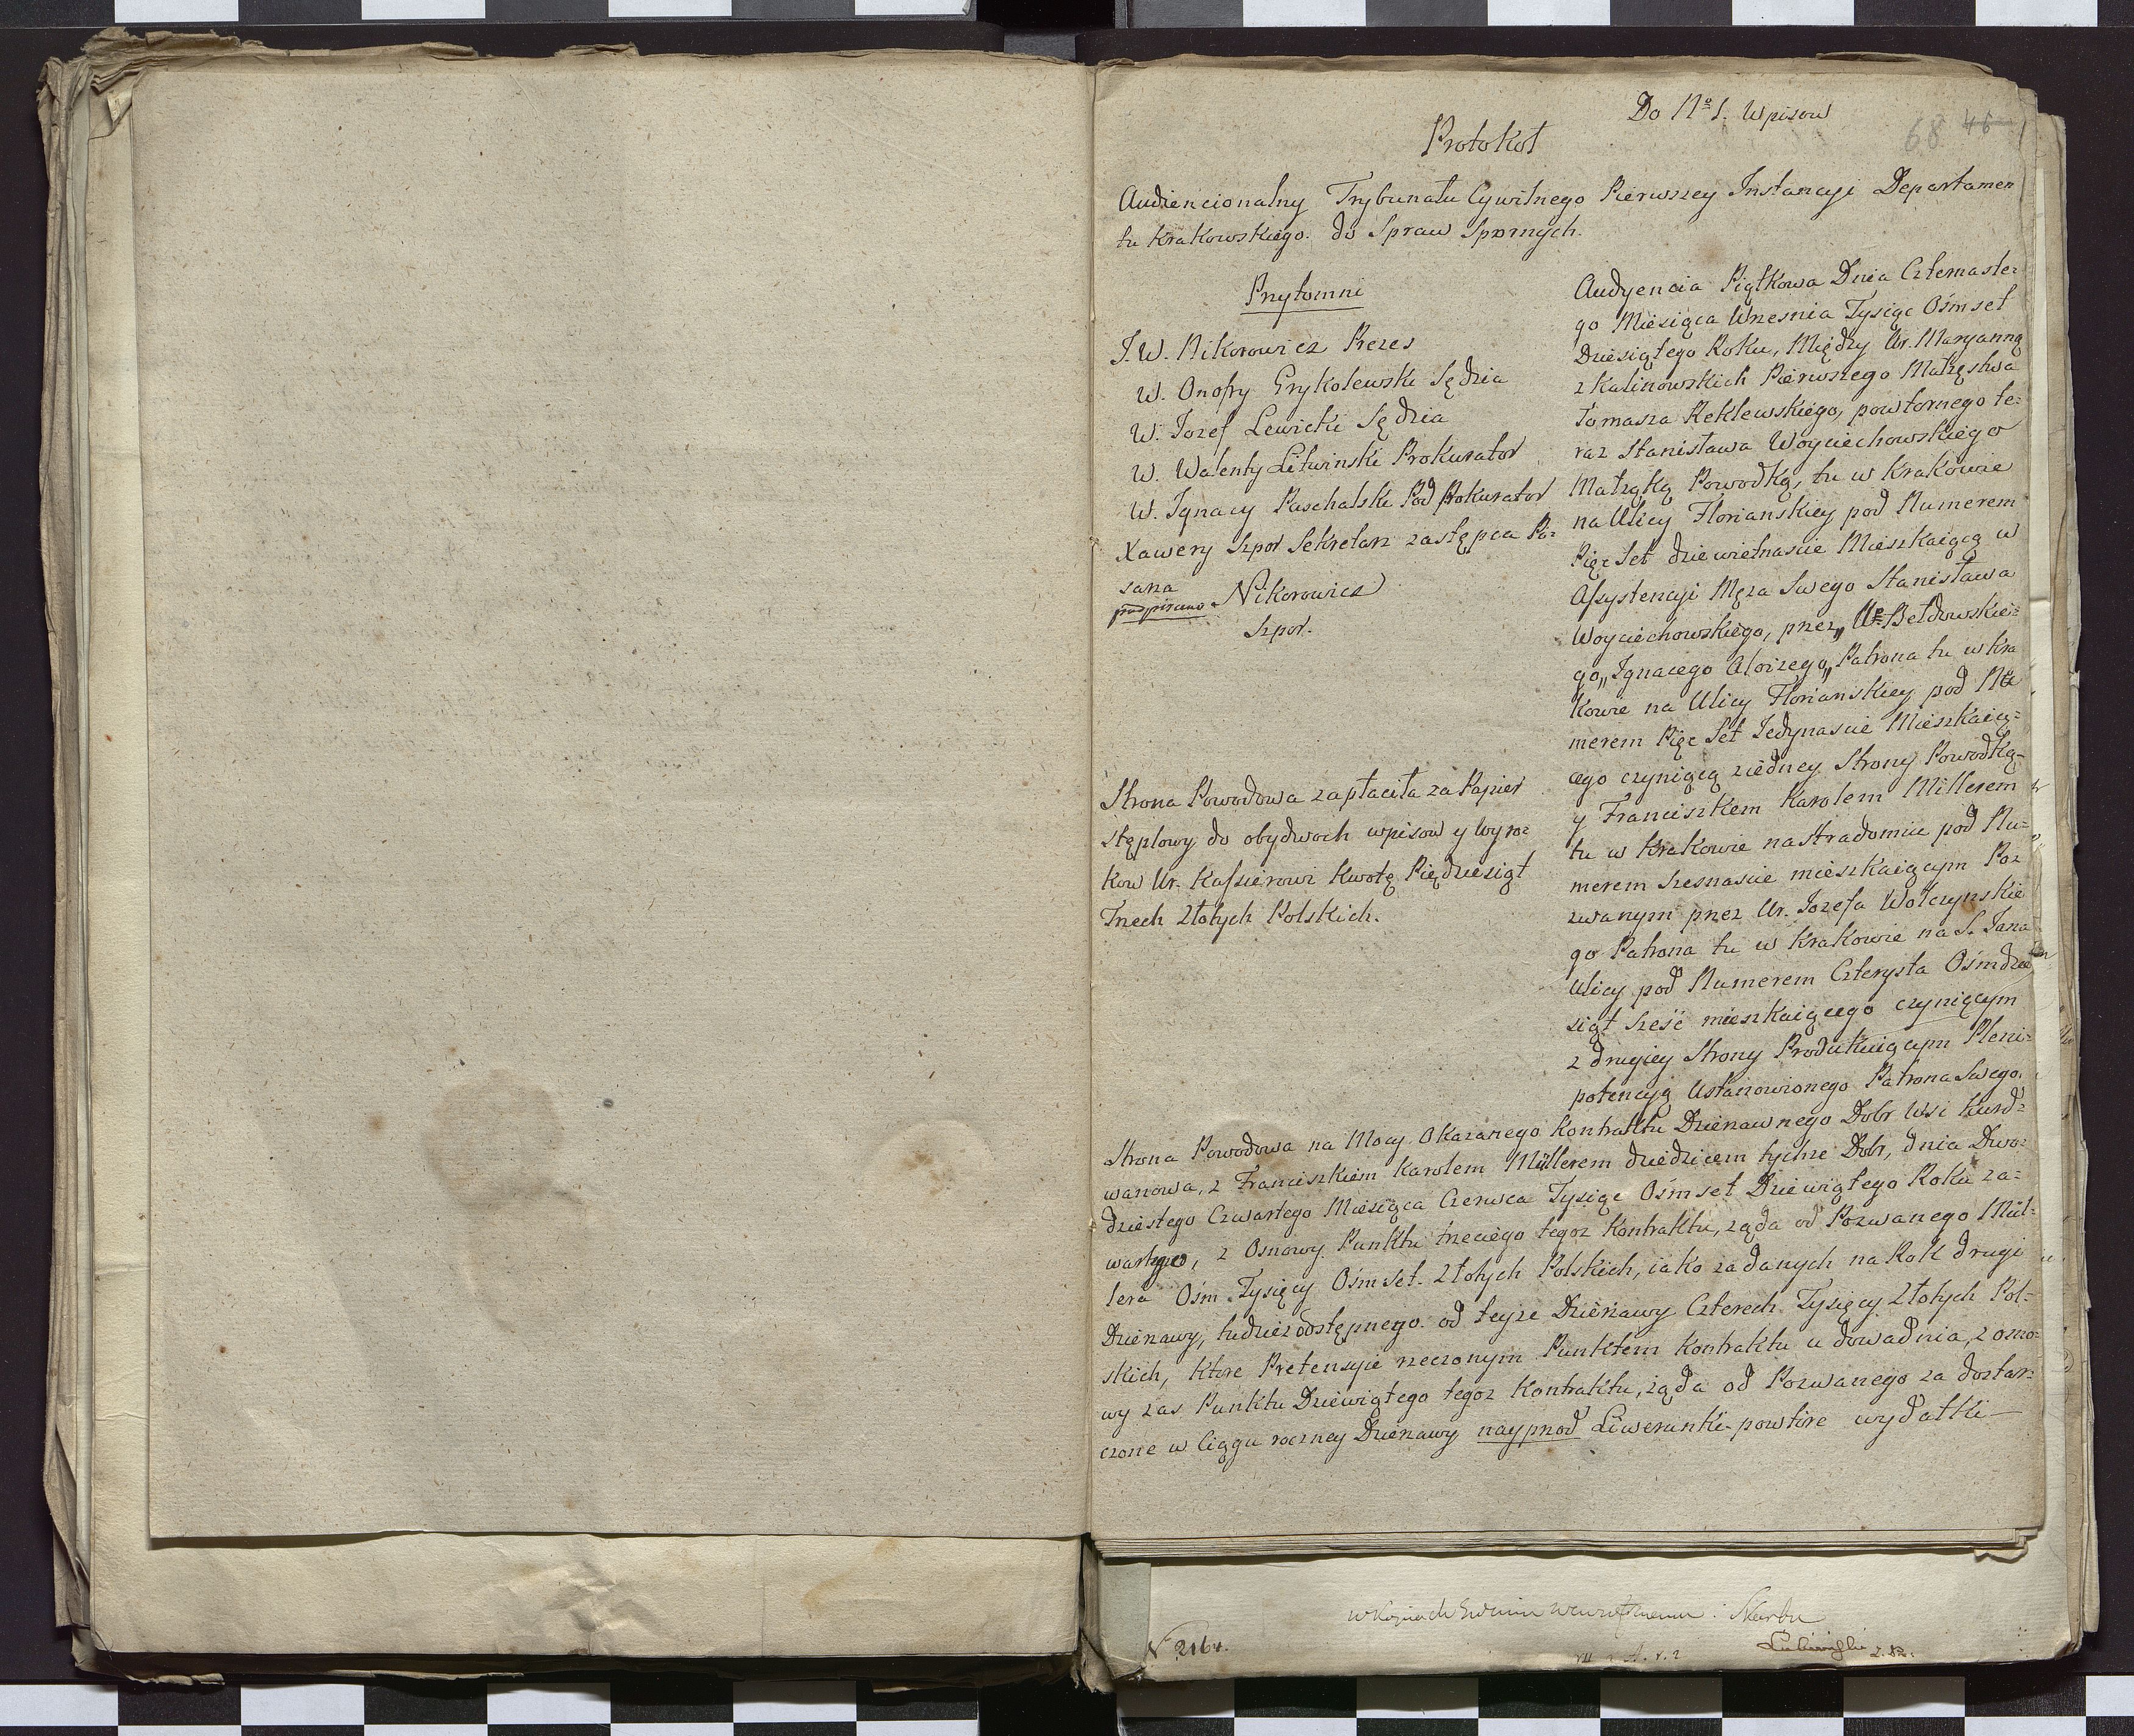 Do No 1. Wpisow
68 46
Protokoł
Audiencionalny Trybunału Cywilnego Pierwszey Instancyi Departamen
tu Krakowskiego. do Spraw Spornych.
Przytomni
J.W. Nikorowicz Prezes
W. Onofry Grykolewski Sędzia
W. Jozef Lewicki Sędzia
W. Walenty Litwinski Prokurator
W. Ignacy Paschalski Pod Prokurator
Xawery Szpor Sekretarz zastępca Pi=
sarza
podpisano Nikorowicz
Szpor.
Strona Powodowa zapłaciła za Papier
stęplowy do obydwoch wpisow y wyro=
kow Ur. Kassierowi Kwotę Pięдziesiąt
Trzech Złotych Polskich.
Audyencia Piątkowa Dnia Czternaste=
go Miesiąca Wrzesnia Tysiąc Ośmset
Dziesiątego Roku, Między Ur. Maryanną
z Kalinowskich Pierwszego Małżęstwa
Tomasza Reklewskiego, powtornego te=
raz Stanisława Woyciechowskiego
Małżąką Powodką, tu w Krakowie
na Ulicy Floryanskiey pod Numerem
Pięc Set dziewietnascie Mieszkaiącą w
Assystencyi Męża Swego Stanisława
Woyciechowskiego, przez „Ur. Bełdowskie=
go„ Ignacego Aloizego„ Patrona tu w Kra
kowie na Ulicy Florianskiey pod Nu
merem Pięc Set Jedynascie Mieszkaią=
cego czyniącą z iedney Strony Powodką
y Franciszkiem Karolem Millerem
tu w Krakowie na Stradomiu pod Nu=
merem szesnascie mieszkaiącym Poz
zwanym przez Ur. Jozefa Wołczynskie
go Patrona tu w Krakowie na S. Jana
Ulicy pod Numerem Czterysta Ośmdzie
siąt Sześć mieszkaiącego czyniącym
z drugiey Strony Produkuiącym Pleni=
potencyą Ustanowionego Patrona Swego.
Strona Powodowa na Mocy Okazanego Kontraktu Dzierzawnego Dobr Wsi Kurd=
wanowa, z Franciszkiem Karolem Müllerem dziedzicem tychze Dobr, dnia Dwo=
dziestego Czwartego Miesiąca Czerwca Tysiąc Ośmset Dziewiątego Roku za=
wartego, z Osnowy Punktu trzeciego tegoz Kontraktu, ząda od Pozwanego Mül=
lera Ośm Tysięcy Ośmset Złotych Polskich, iako zadanych na Rok drugi
Dzierzawy, tudziez odstępnego od teyze Dzierzawy Czterech Tysięcy Złotych Pol=
skich, ktore Pretensyie rzeczonym Punktem Kontraktu udowadnia, z osno=
wy zas Punktu Dziewiątego tegoz Kontraktu, ząda od Pozwanego za dostar=
czone w Ciągu roczney Dzierzawy nayprzod Liwerunki powtore wydatki
N 2164.